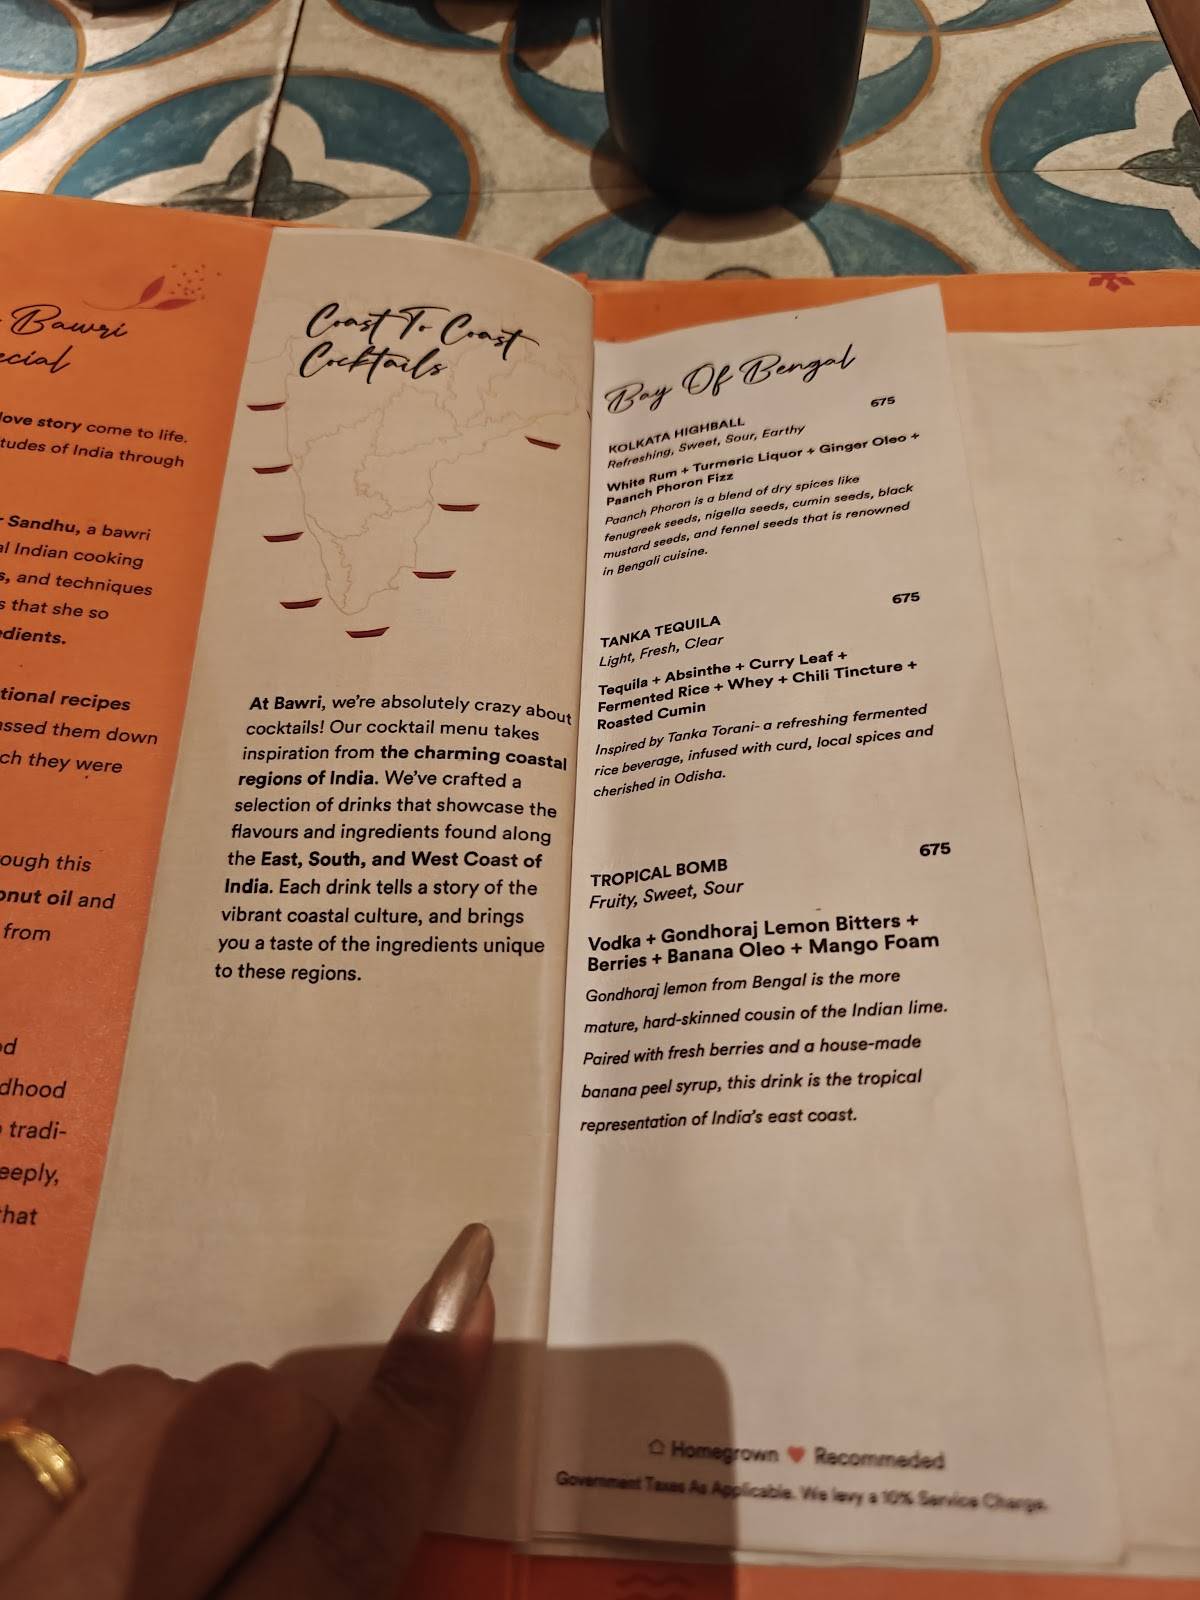 Bawri
ecial
love story come to life.
tudes of India through
Sandhu, a bawri
al Indian cooking
s, and techniques
s that she so
edients.
tional recipes
assed them down
ch they were
ough this
onut oil and
from
od
dhood
tradi-
eeply,
that
Coast To Coast
Cocktails
At Bawri, we're absolutely crazy about
cocktails! Our cocktail menu takes
inspiration from the charming coastal
regions of India. We've crafted a
selection of drinks that showcase the
flavours and ingredients found along
the East, South, and West Coast of
India. Each drink tells a story of the
vibrant coastal culture, and brings
you a taste of the ingredients unique
to these regions.
Bay Of Bengal
675
KOLKATA HIGHBALL
Refreshing, Sweet, Sour, Earthy
White Rum + Turmeric Liquor + Ginger Oleo +
Paanch Phoron Fizz
Paanch Phoron is a blend of dry spices like
fenugreek seeds, nigella seeds, cumin seeds, black
mustard seeds, and fennel seeds that is renowned
in Bengali cuisine.
675
TANKA TEQUILA
Light, Fresh, Clear
Tequila + Absinthe + Curry Leaf +
Fermented Rice + Whey + Chili Tincture +
Roasted Cumin
Inspired by Tanka Torani- a refreshing fermented
rice beverage, infused with curd, local spices and
cherished in Odisha.
675
TROPICAL BOMB
Fruity, Sweet, Sour
Vodka + Gondhoraj Lemon Bitters +
Berries + Banana Oleo + Mango Foam
Gondhoraj lemon from Bengal is the more
mature, hard-skinned cousin of the Indian lime.
Paired with fresh berries and a house-made
banana peel syrup, this drink is the tropical
representation of India's east coast.
Homegrown Recommeded
Government Taxes As Applicable. We levy a 10% Service Charge.